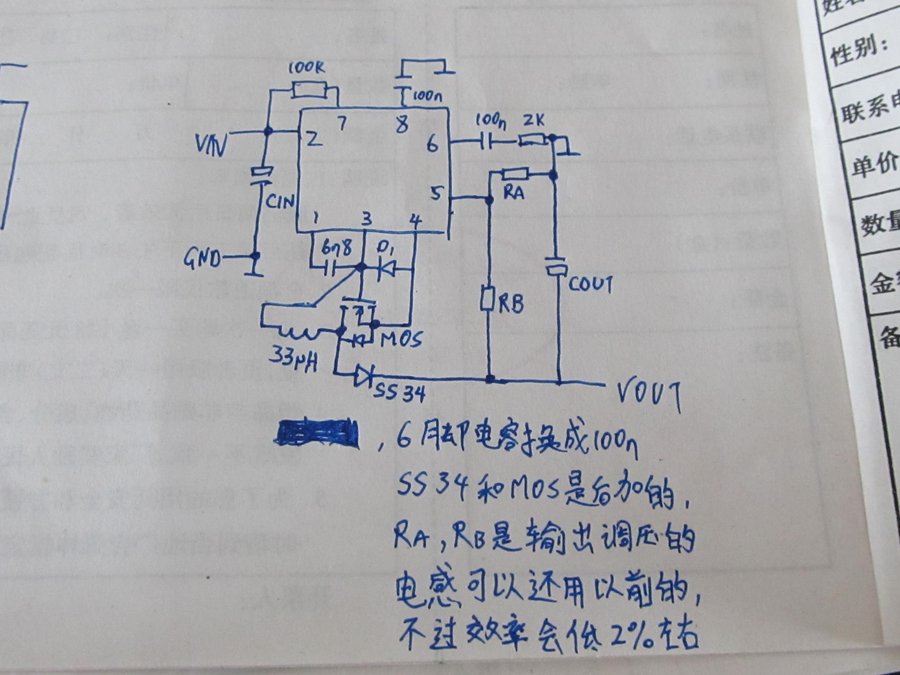 100K
100n
7
8
VIN
2
6
100n
2K
5
RA
CIN
1
3
4
6n8
D1
GND
RB
COUT
MOS
33μH
SS34
VOUT
,6月却电容换成100n
SS34和MOS是后加的,
RA,RB是输出调压的
电感可以还用以前的,
不过效率会低2%左右
性别:
联系电
单价
数量
金
备